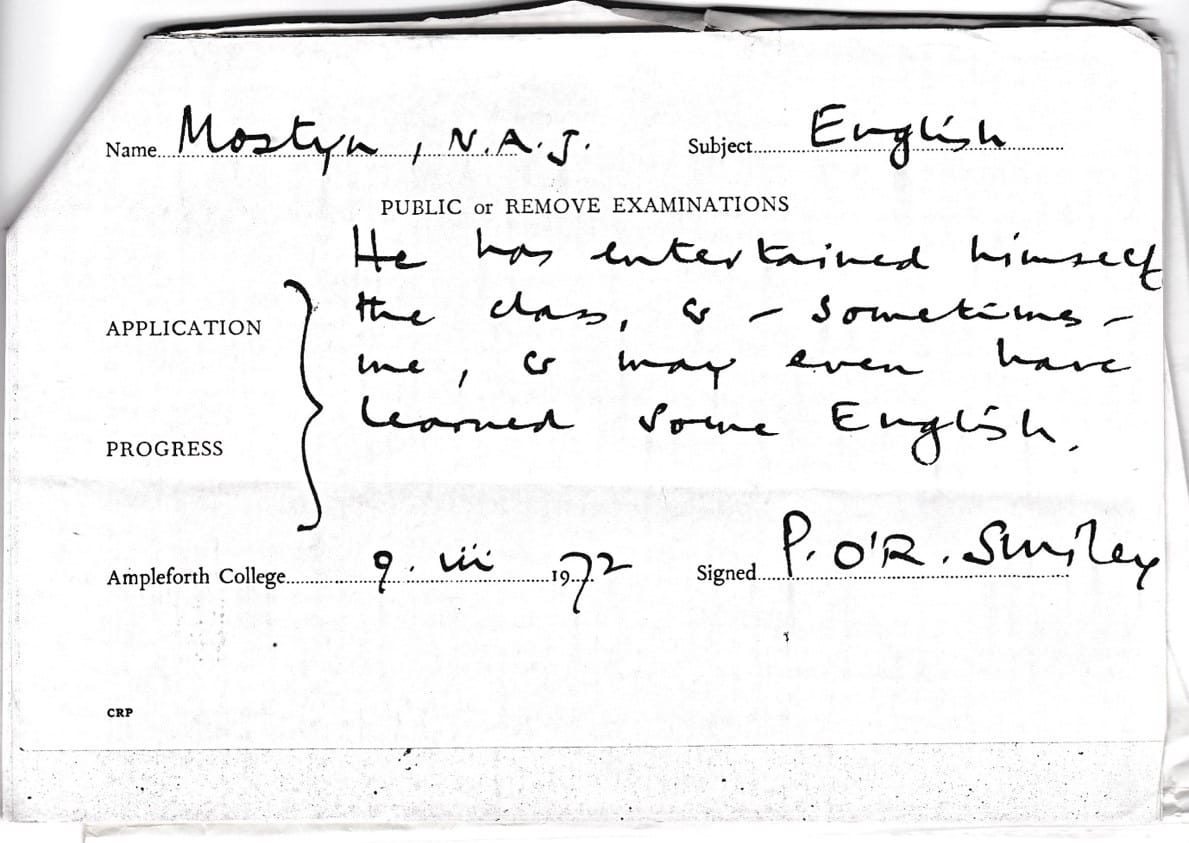 Name Mostyn, N.A.J. Subject English
PUBLIC or REMOVE EXAMINATIONS
He has entertained himself
the class, & – sometimes –
APPLICATION
me, & may even have
learned some English.
PROGRESS
Ampleforth College 9. iii 1972 Signed P. O'R. Smiley
CRP